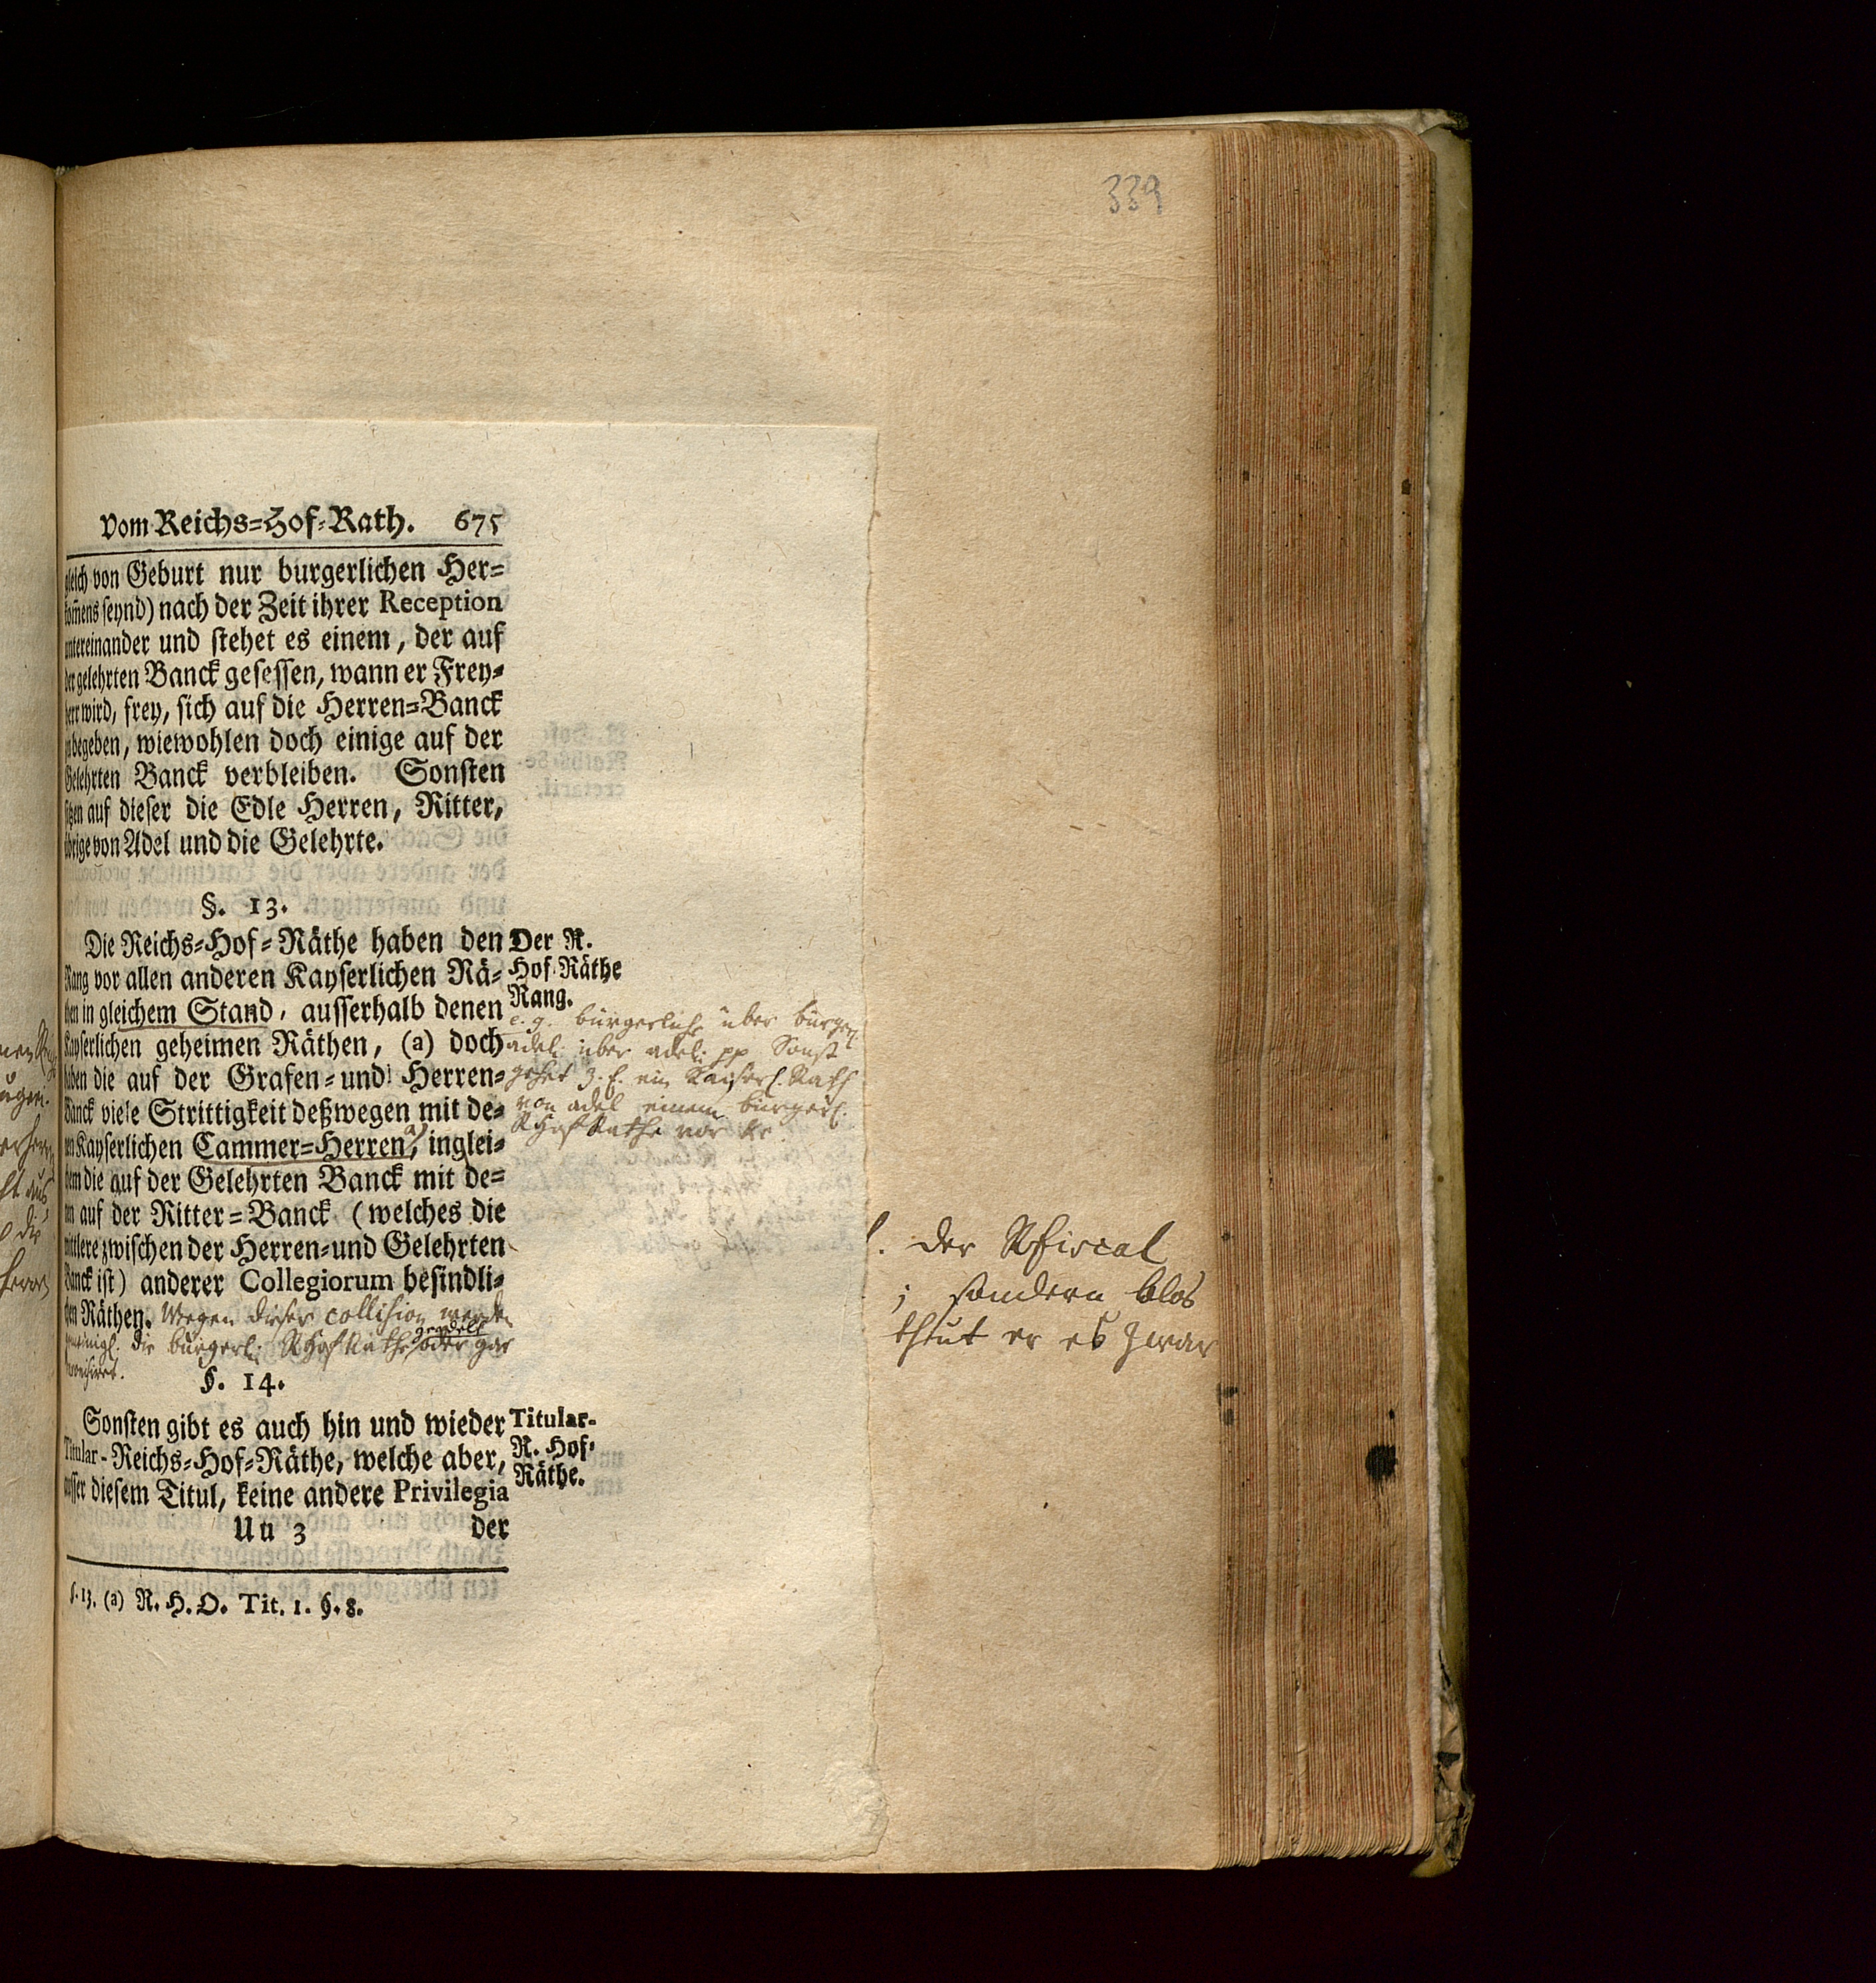 339
vom Reichs=Hof=Rath. 675
gleich von Geburt nur burgerlichen Her=
kom̃ens seynd) nach der Zeit ihrer Reception
untereinander und stehet es einem, der auf
der gelehrten Banck gesessen, wann er Frey=
herr wird, frey, sich auf die Herren=Banck
zu begeben, wiewohlen doch einige auf der
Gelehrten Banck verbleiben. Sonsten
sitzen auf dieser die Edle Herren, Ritter,
übrige von Adel und die Gelehrte.
§. 13.
Die Reichs=Hof=Räthe haben den
Rang vor allen anderen Kayserlichen Rä=
then in gleichem Stand, ausserhalb denen
Kayserlichen geheimen Räthen, (a) doch
haben die auf der Grafen=und Herren=
Banck viele Strittigkeit deßwegen mit de=
nen Kayserlichen Cammer=Herren, inglei=
chem die auf der Gelehrten Banck mit de=
nen auf der Ritter=Banck (welches die
mittlere zwischen der Herren=und Gelehrten
Banck ist) anderer Collegiorum befindli=
chen Räthen.
Wegen dieser collision werden
die bürgerl. RHofRäthe geadelt oder gar
Der R.
Hof-Räthe
Rang.
e. g. bürgerliche über bürgerl.
adel. über adel. pp Sonst
gehet z. E. ein Kayserl. Rath
von adel einem bürgerl.
RHofRathe vor
§. 14.
Sonsten gibt es auch hin und wieder
Titular-Reichs=Hof=Räthe, welche aber,
ausser diesem Titul, keine andere Privilegia
Uu 3 der
Titular-
R. Hof-
Räthe.
§. 13. (a) R. H. O. Tit. 1. §. 8.
der RFiscal
; sondern blos
thut er es zwar